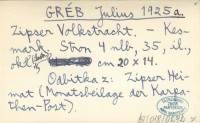 GRÉB Julius 1925a.
Zipser Volkstracht. – Kes-
mark, Stron 4 nlb, 35, il.,
okł. cm 20 x 14.
Odbitka z: Zipser Hei-
mat (Monatsbeilage der Karpa-
then-Post).